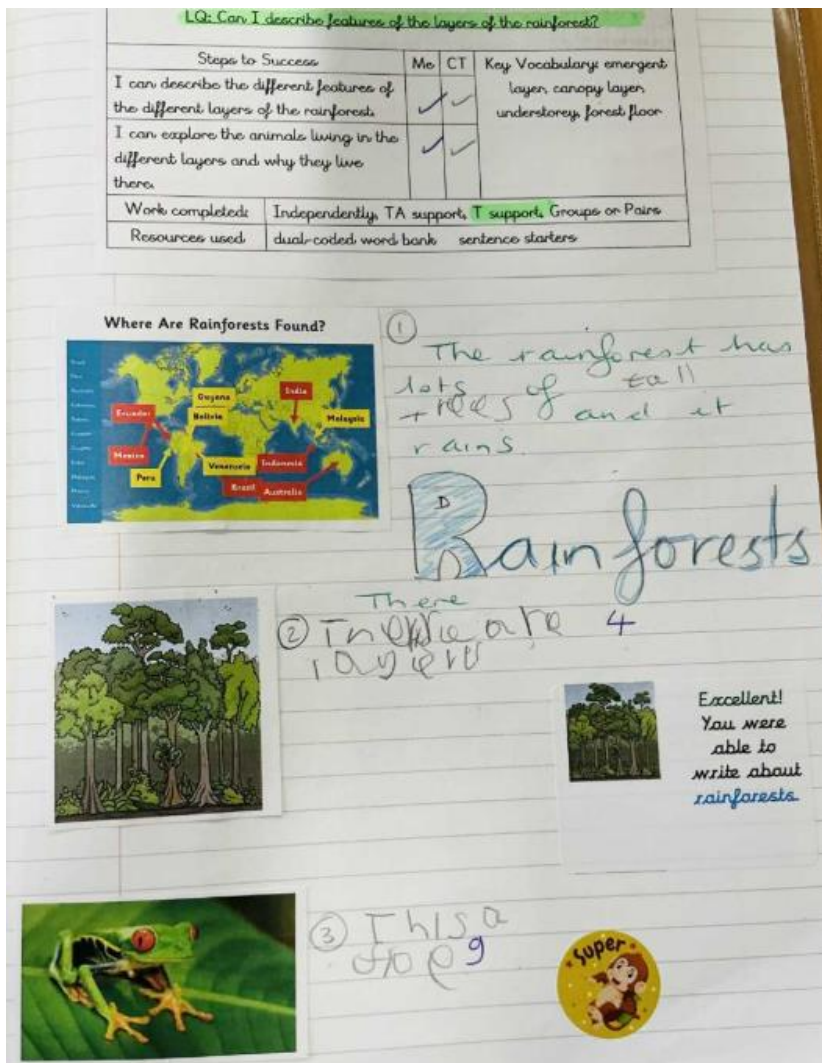 LQ: Can I describe features of the layers of the rainforest?
Steps to Success
Me
CT
Key Vocabulary: emergent
layer, canopy layer,
understorey, forest floor
I can describe the different features of
the different layers of the rainforest.
I can explore the animals living in the
different layers and why they live
there.
Work completed:
Independently, TA support, T support, Groups or Pairs
Resources used
dual-coded word bank sentence starters
Where Are Rainforests Found?
Guyana
India
Ecuador
Bolivia
Malaysia
Mexico
Venezuela
Indonesia
Peru
Brazil
Australia
① The rainforest has
lots of tall
trees and it
rains.
Rainforests
There
② are 4
③ This a
Excellent!
You were
able to
write about
rainforests
Super